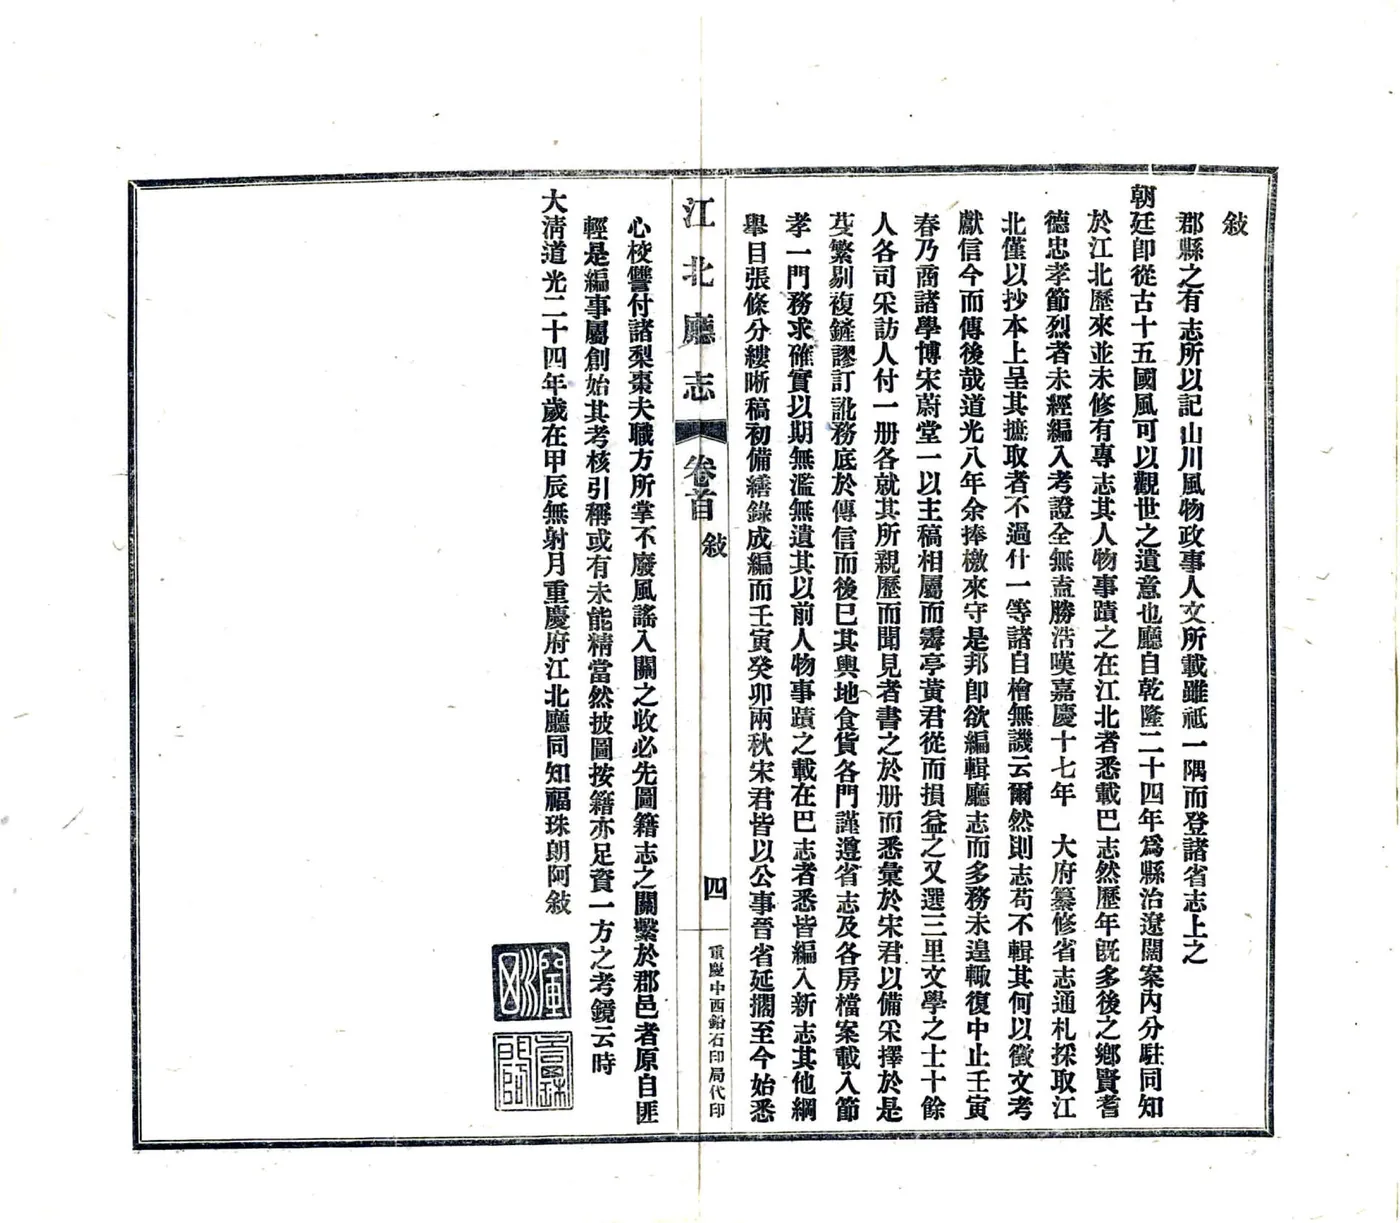 敍
郡縣之有志所以記山川風物政事人文所載雖祗一隅而登諸省志上之
朝廷卽從古十五國風可以觀世之遺意也廳自乾隆二十四年爲縣治遼闊案內分駐同知
於江北歷來並未修有專志其人物事蹟之在江北者悉載巴志然歷年旣多後之鄉賢耆
德忠孝節烈者未經編入考證全無盍勝浩嘆嘉慶十七年 大府纂修省志通札採取江
北僅以抄本上呈其摭取者不過什一等諸自檜無譏云爾然則志苟不輯其何以徵文考
獻信今而傳後哉道光八年余捧檄來守是邦卽欲編輯廳志而多務未遑輙復中止壬寅
春乃商諸學博宋蔚堂一以主稿相屬而霽亭黃君從而損益之又選三里文學之士十餘
人各司采訪人付一册各就其所親歷而聞見者書之於册而悉彙於宋君以備采擇於是
芟繁剔複鏟謬訂訛務底於傳信而後已其輿地食貨各門謹遵省志及各房檔案載入節
孝一門務求確實以期無濫無遺其以前人物事蹟之載在巴志者悉皆編入新志其他綱
舉目張條分縷晰稿初備繕錄成編而壬寅癸卯兩秋宋君皆以公事晉省延擱至今始悉
江北廳志 卷首 敍 四 重慶中西鉛石印局代印
心校讐付諸梨棗夫職方所掌不廢風謠入關之收必先圖籍志之關繫於郡邑者原自匪
輕是編事屬創始其考核引稱或有未能精當然披圖按籍亦足資一方之考鏡云時
大淸道光二十四年歲在甲辰無射月重慶府江北廳同知福珠朗阿敍